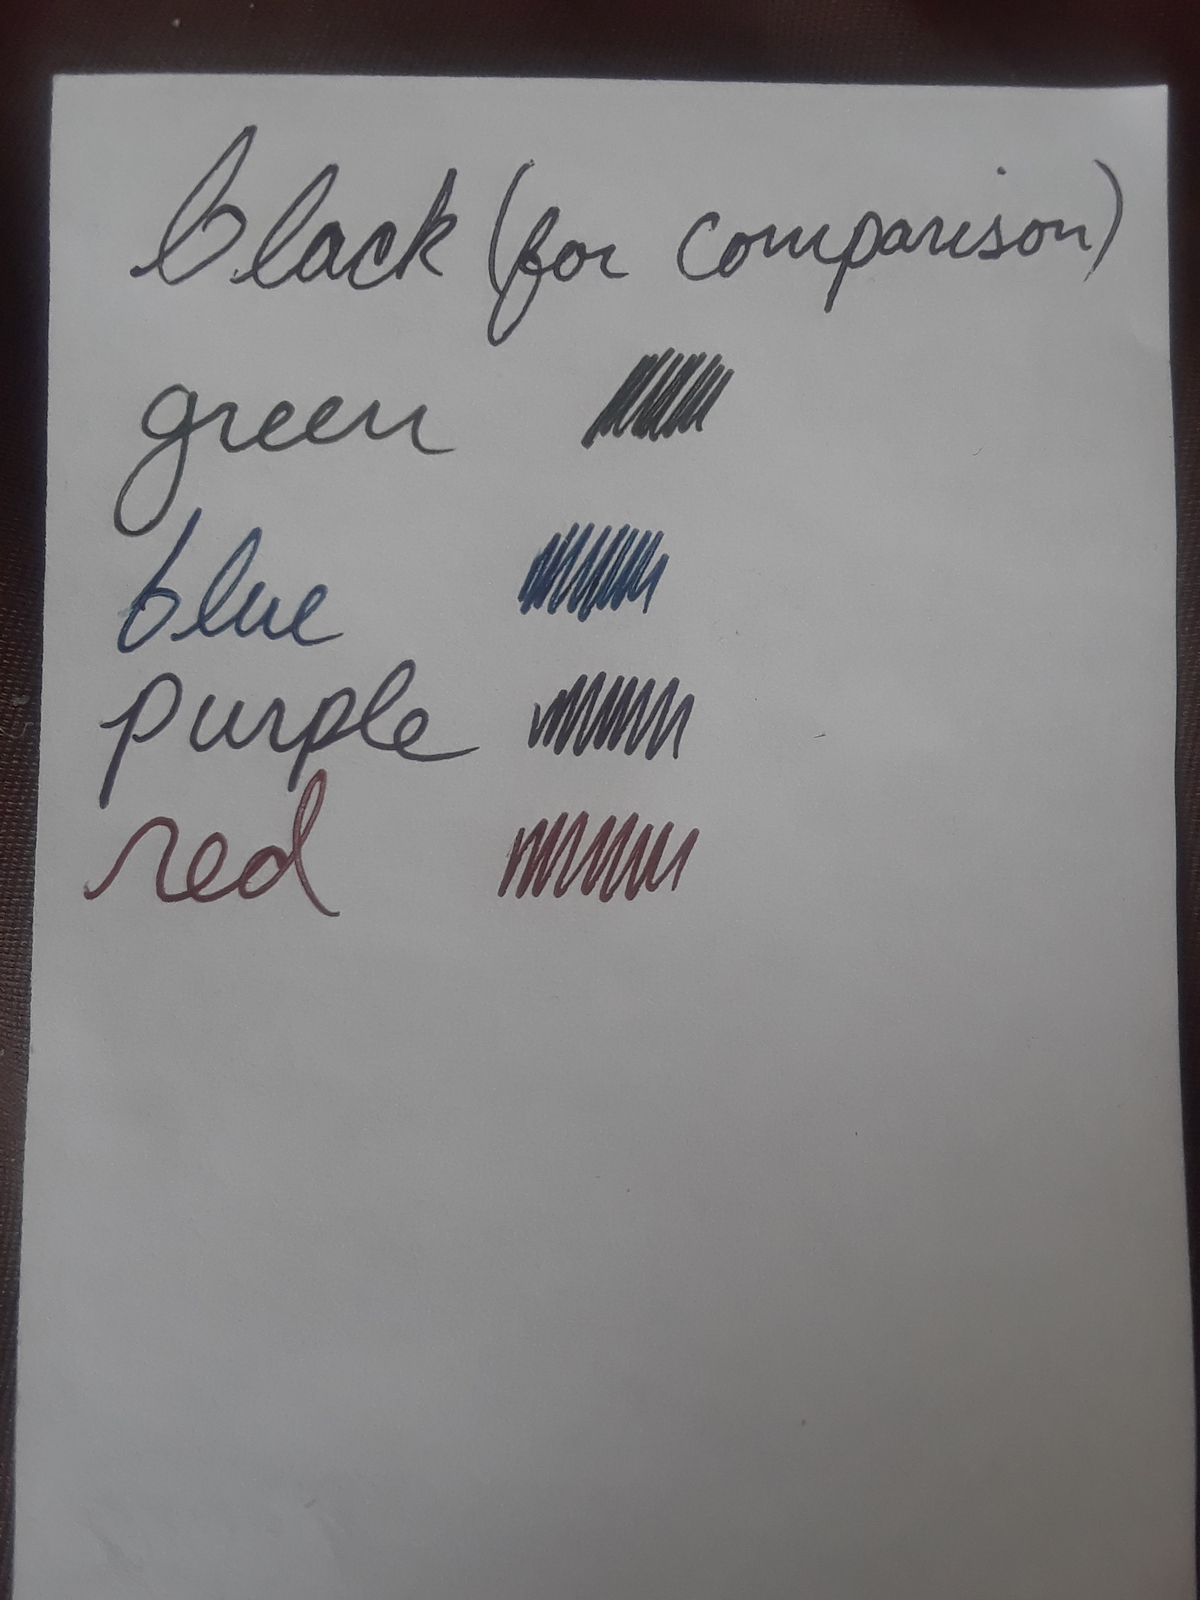 black (for comparison)
green
blue
purple
red